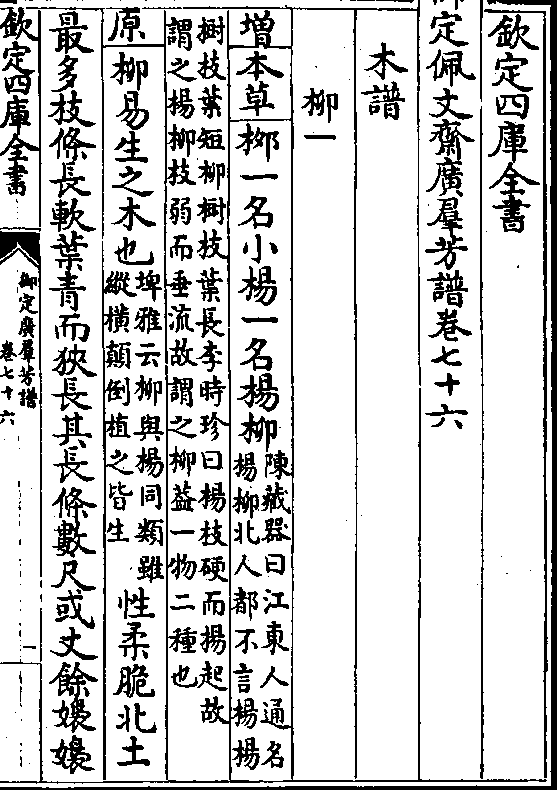 欽定四庫全書
御定佩文齋廣羣芳譜卷七十六
木譜
柳一
增本草柳一名小楊一名楊柳陳藏器曰江東人通名
楊柳北人都不言楊楊
樹枝葉短柳樹枝葉長李時珍曰楊枝硬而揚起故
謂之楊柳枝弱而垂流故謂之柳葢一物二種也
原柳易生之木也埤雅云柳與楊同類雖
縱橫顛倒植之皆生性柔脆北土
最多枝條長軟葉青而狹長其長條數尺或丈餘嬝嬝
欽定四庫全書
御定廣羣芳譜
卷七十六
一